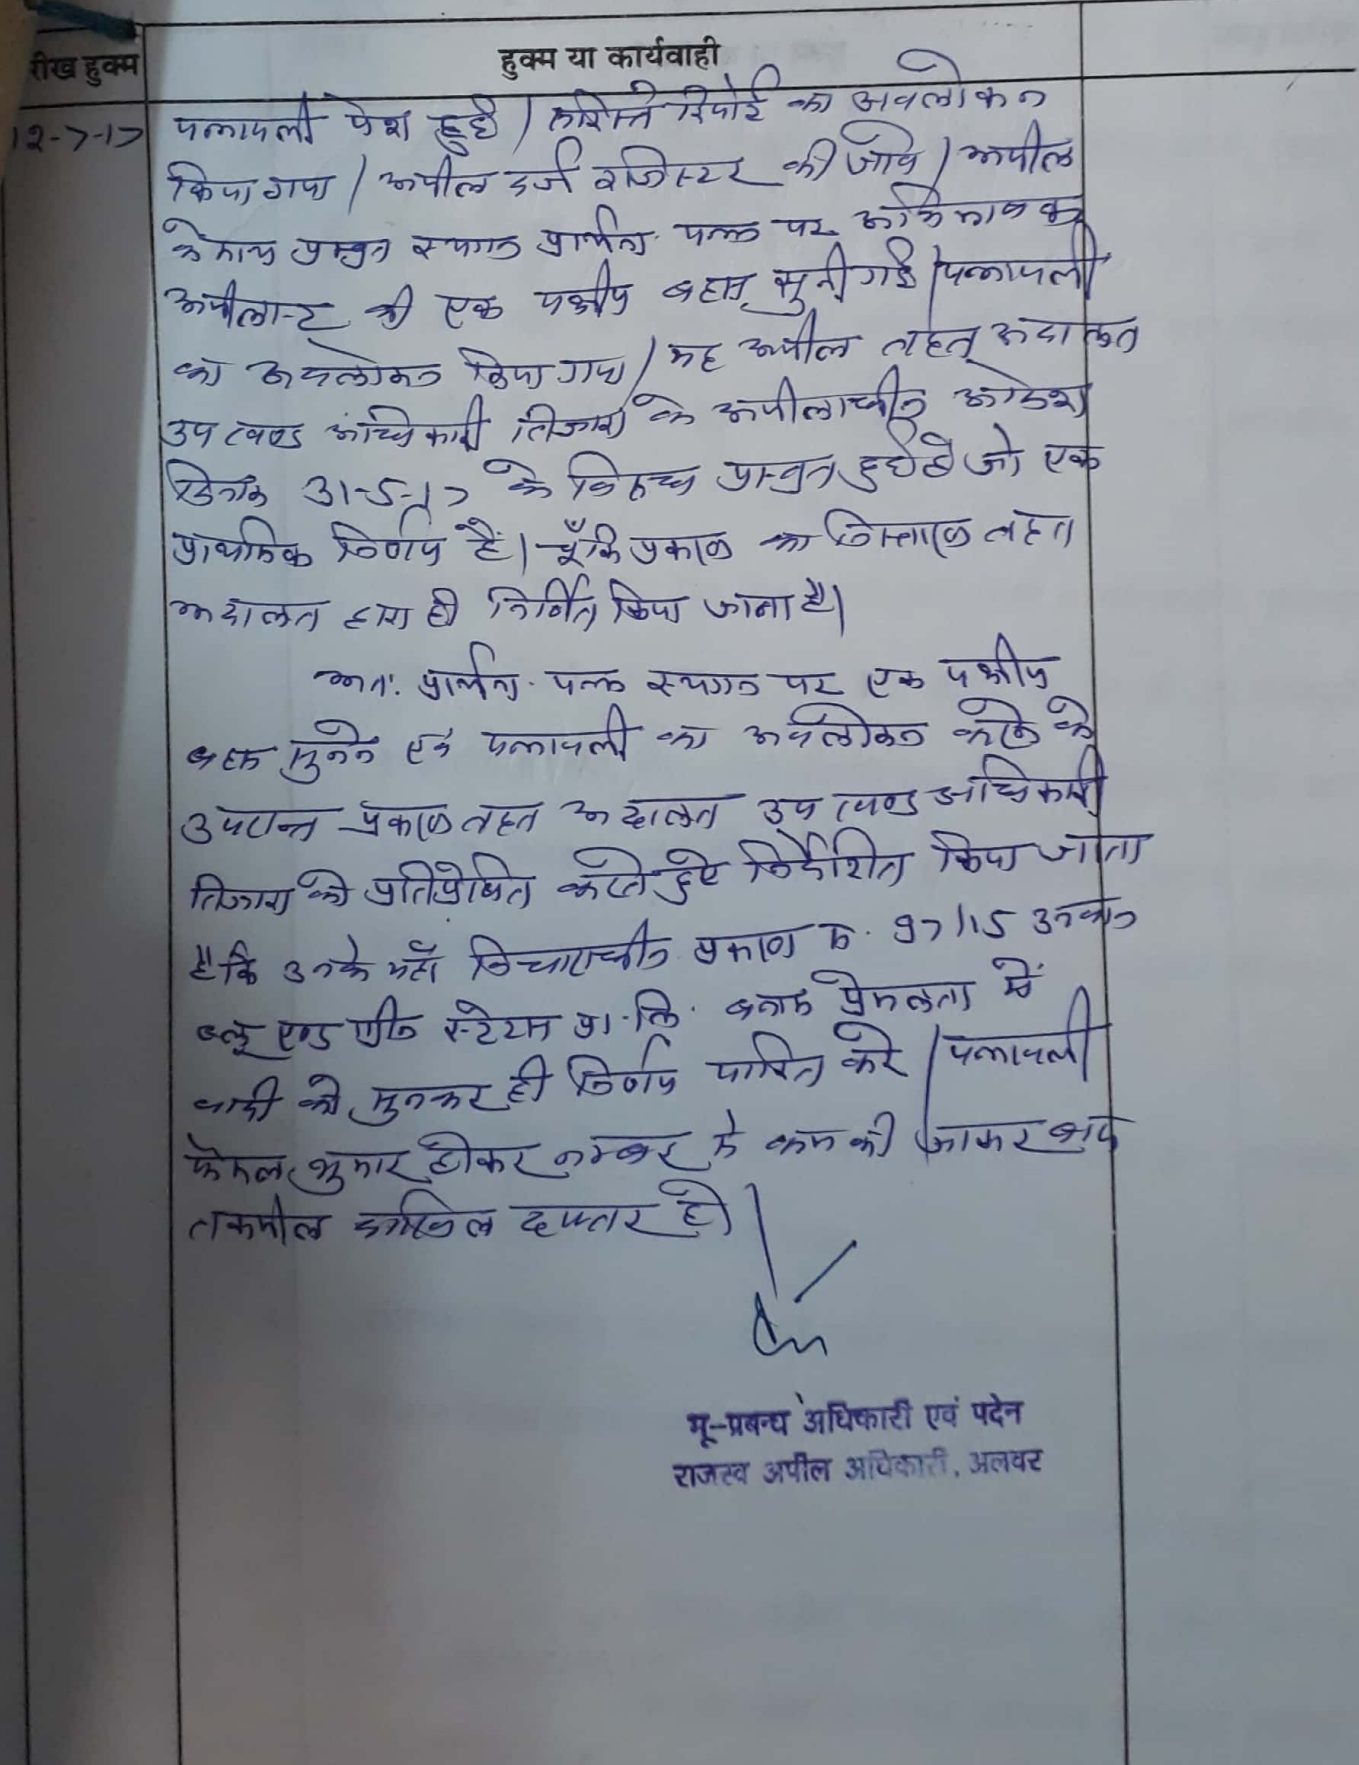 रीख हुक्म
हुक्म या कार्यवाही
12-7-17
पत्रावली पेश हुई। रिपोर्ट का अवलोकन
किया गया। अपील दर्ज रजिस्टर की जावे। अपील
के साथ प्रस्तुत स्थगन प्रार्थना पत्र पर अभिभाषक
अपीलान्ट की एक पक्षीय बहस सुनी गई। पत्रावली
का अवलोकन किया गया। यह अपील तहत अदालत
उप खण्ड अधिकारी तिजारा के अपीलाधीन आदेश
दिनांक 31-5-17 के विरुद्ध प्रस्तुत हुई है जो एक
प्राथमिक निर्णय है। चूँकि प्रकरण का निस्तारण तहत
अदालत द्वारा ही निर्णित किया जाना है।
अतः प्रार्थना पत्र स्थगन पर एक पक्षीय
बहस सुनने एवं पत्रावली का अवलोकन करने के
उपरान्त प्रकरण तहत अदालत उप खण्ड अधिकारी
तिजारा को प्रतिप्रेषित करते हुए निर्देशित किया जाता
है कि उनके यहाँ विचाराधीन प्रकरण क्र. 97/15 उनवान
ब्लू एण्ड ग्रीन स्टेटस प्रा. लि. बनाम प्रेमलता में
वादी को सुनकर ही निर्णय पारित करे। पत्रावली
फैसल शुमार होकर नम्बर से कम की जाकर बाद
तकमील दाखिल दफ्तर हो।
भू-प्रबन्ध अधिकारी एवं पदेन
राजस्व अपील अधिकारी, अलवर